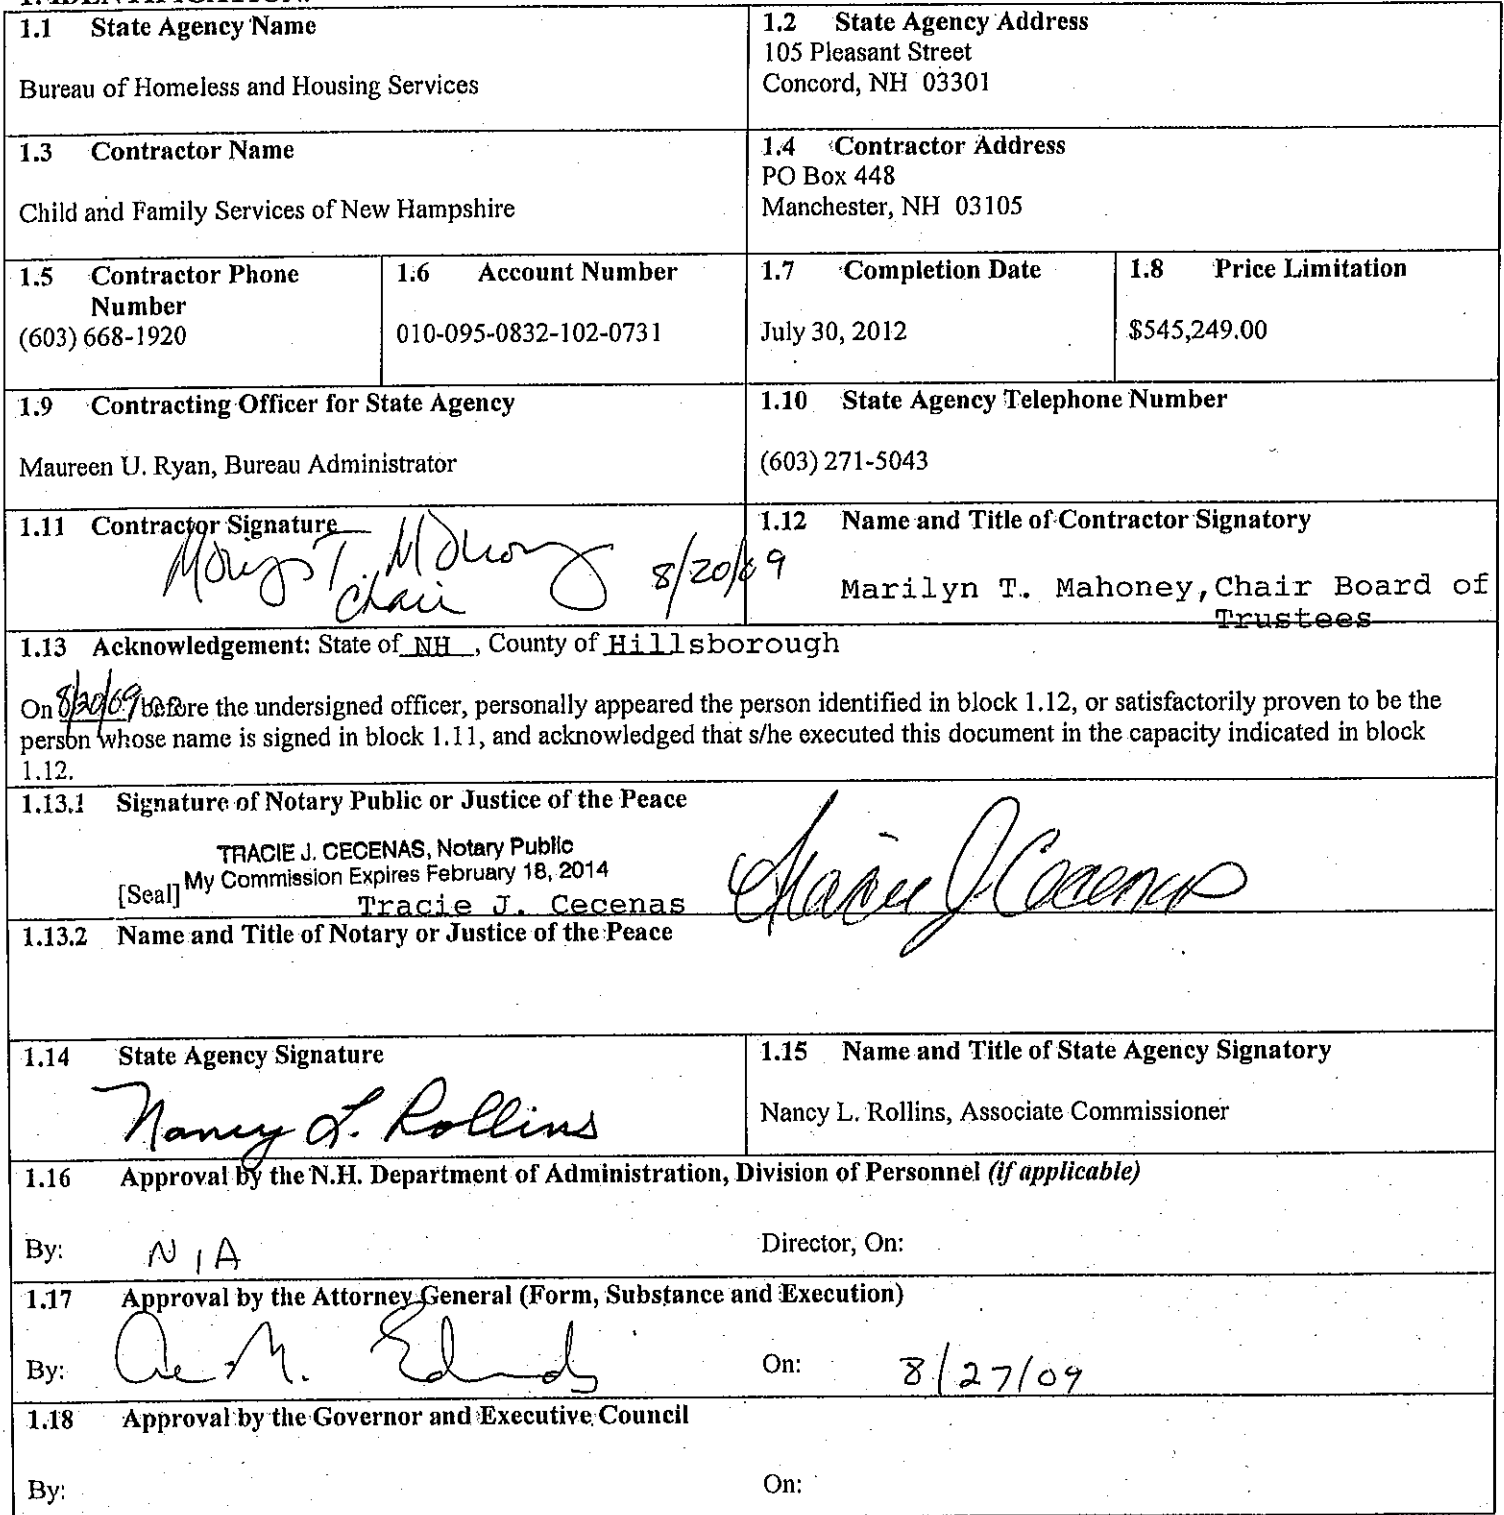 1.1 State Agency Name
Bureau of Homeless and Housing Services
1.2 State Agency Address
105 Pleasant Street
Concord, NH 03301
1.3 Contractor Name
Child and Family Services of New Hampshire
1.4 Contractor Address
PO Box 448
Manchester, NH 03105
1.5 Contractor Phone
Number
(603) 668-1920
1.6 Account Number
010-095-0832-102-0731
1.7 Completion Date
July 30, 2012
1.8 Price Limitation
$545,249.00
1.9 Contracting Officer for State Agency
Maureen U. Ryan, Bureau Administrator
1.10 State Agency Telephone Number
(603) 271-5043
1.11 Contractor Signature
Chair
8/20/09
1.12 Name and Title of Contractor Signatory
Marilyn T. Mahoney, Chair Board of
Trustees
1.13 Acknowledgement: State of NH , County of Hillsborough
On 8/20/09 before the undersigned officer, personally appeared the person identified in block 1.12, or satisfactorily proven to be the
person whose name is signed in block 1.11, and acknowledged that s/he executed this document in the capacity indicated in block
1.12.
1.13.1 Signature of Notary Public or Justice of the Peace
TRACIE J. CECENAS, Notary Public
[Seal] My Commission Expires February 18, 2014
Tracie J. Cecenas
Tracie J Cecenas
1.13.2 Name and Title of Notary or Justice of the Peace
1.14 State Agency Signature
Nancy L. Rollins
1.15 Name and Title of State Agency Signatory
Nancy L. Rollins, Associate Commissioner
1.16 Approval by the N.H. Department of Administration, Division of Personnel (if applicable)
By: N/A
Director, On:
1.17 Approval by the Attorney General (Form, Substance and Execution)
By:
On: 8/27/09
1.18 Approval by the Governor and Executive Council
By:
On: